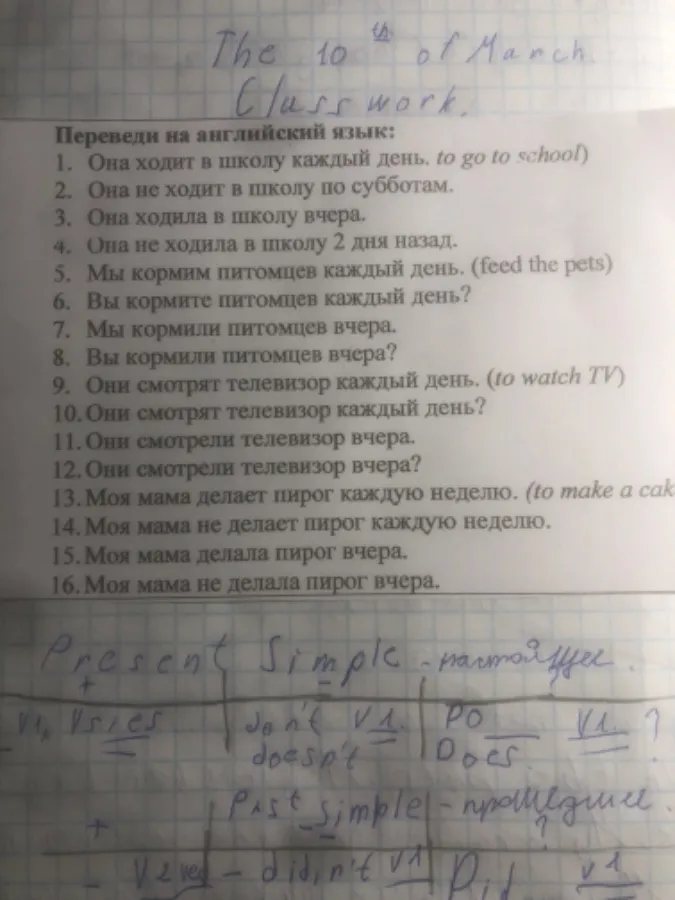 The 10th of March.
Class work.
Переведи на английский язык:
1. Она ходит в школу каждый день. to go to school)
2. Она не ходит в школу по субботам.
3. Она ходила в школу вчера.
4. Она не ходила в школу 2 дня назад.
5. Мы кормим питомцев каждый день. (feed the pets)
6. Вы кормите питомцев каждый день?
7. Мы кормили питомцев вчера.
8. Вы кормили питомцев вчера?
9. Они смотрят телевизор каждый день. (to watch TV)
10. Они смотрят телевизор каждый день?
11. Они смотрели телевизор вчера.
12. Они смотрели телевизор вчера?
13. Моя мама делает пирог каждую неделю. (to make a cak
14. Моя мама не делает пирог каждую неделю.
15. Моя мама делала пирог вчера.
16. Моя мама не делала пирог вчера.
Present Simple - настоящее.
+ - ?
V1, Vs/es don't V1. Do V1. ?
doesn't Does
Past simple - прошедшее.
+ - ?
- V2 - didn't V1 Did V1